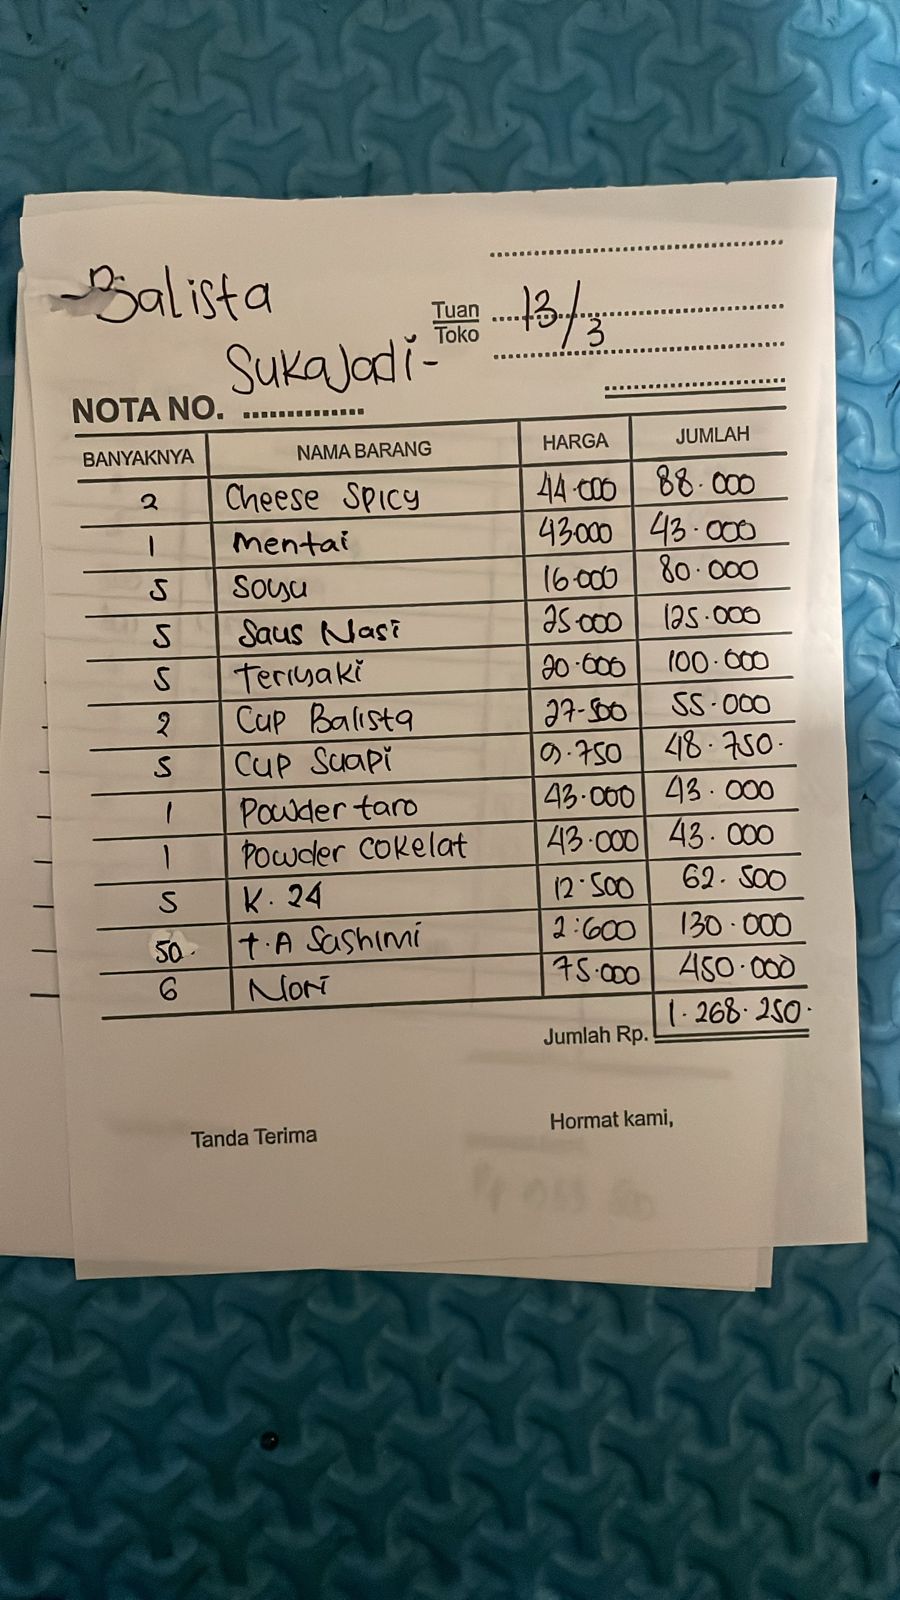 Balista
Sukajadi-
Tuan
Toko
13/3
NOTA NO.
BANYAKNYA NAMA BARANG HARGA JUMLAH
2 Cheese Spicy 44.000 88.000
1 mentai 43.000 43.000
5 Soyu 16.000 80.000
5 Saus Nasi 25.000 125.000
5 Teriyaki 20.000 100.000
2 Cup Balista 27.500 55.000
5 Cup Suapi 9.750 48.750.
1 Powder taro 43.000 43.000
1 Powder cokelat 43.000 43.000
5 K.24 12.500 62.500
50. t.A Sashimi 2:600 130.000
6 Nori 75.000 450.000
Jumlah Rp. 1.268.250.
Tanda Terima Hormat kami,